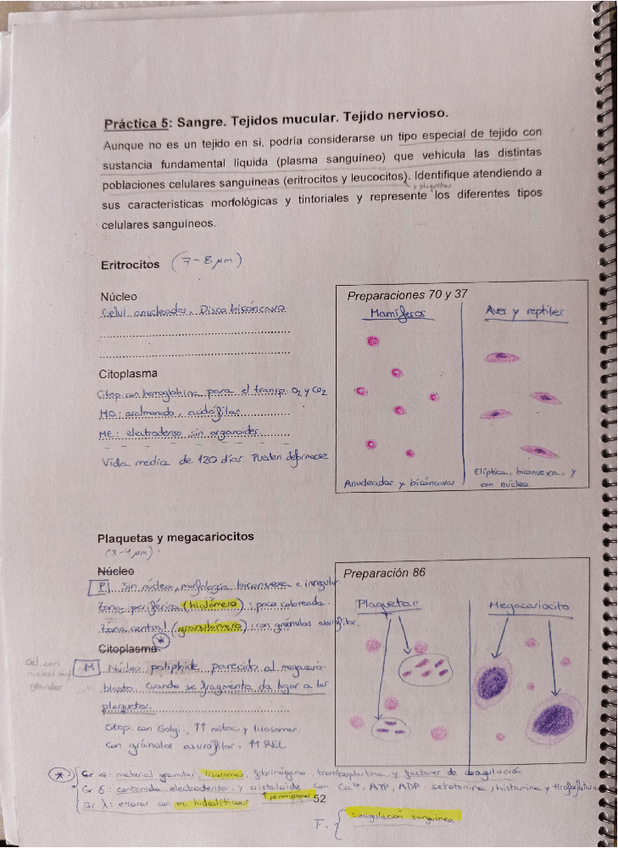 Práctica 5: Sangre. Tejidos mucular. Tejido nervioso.
Aunque no es un tejido en si, podría considerarse un tipo especial de tejido con
sustancia fundamental líquida (plasma sanguíneo) que vehicula las distintas
poblaciones celulares sanguíneas (eritrocitos y leucocitos). Identifique atendiendo a
y plaquetas
sus características morfológicas y tintoriales y represente los diferentes tipos
celulares sanguíneos.
Eritrocitos (7-8 µm)
Núcleo
Célul. anucleadas, Disco bicóncavo
Citoplasma
Citop. con hemoglobina para el transp. O2 y CO2
MO: asalmonado, acidófilas
ME: electrodenso sin organoides
Vida media de 120 días. Pueden deformarse
Preparaciones 70 y 37
Mamíferos
Aves y reptiles
Anucleadas y bicóncavas
Elíptica, biconvexa, y
con núcleo
Plaquetas y megacariocitos
(3-4 µm)
Núcleo
P Sin núcleo, morfología biconvexa e irregular
Zona periférica (hialómero), poco coloreada.
Zona central (granulómero) con gránulos azurófilos.
*
Citoplasma
Cel. con
nucleo muy
grandes
M Núcleo poliploide parecido al megacario-
blasto. Cuando se fragmenta da lugar a las
plaquetas.
Citop. con Golgi, ↑↑ mitoc y lisosomas.
Con gránulos azurófilos. ↑↑ REL
Preparación 86
Plaquetas
Megacariocito
* Gr α: material granular, lisosomas, fibrinógeno, tromboplastina y factores de coagulación
Gr δ: contenido electrodenso y cristaloide con Ca++, ATP, ADP serotonina, histamina y
Gr λ: enzimas hidrolíticas ↑ peroxisomas
52
F. { coagulación sanguínea